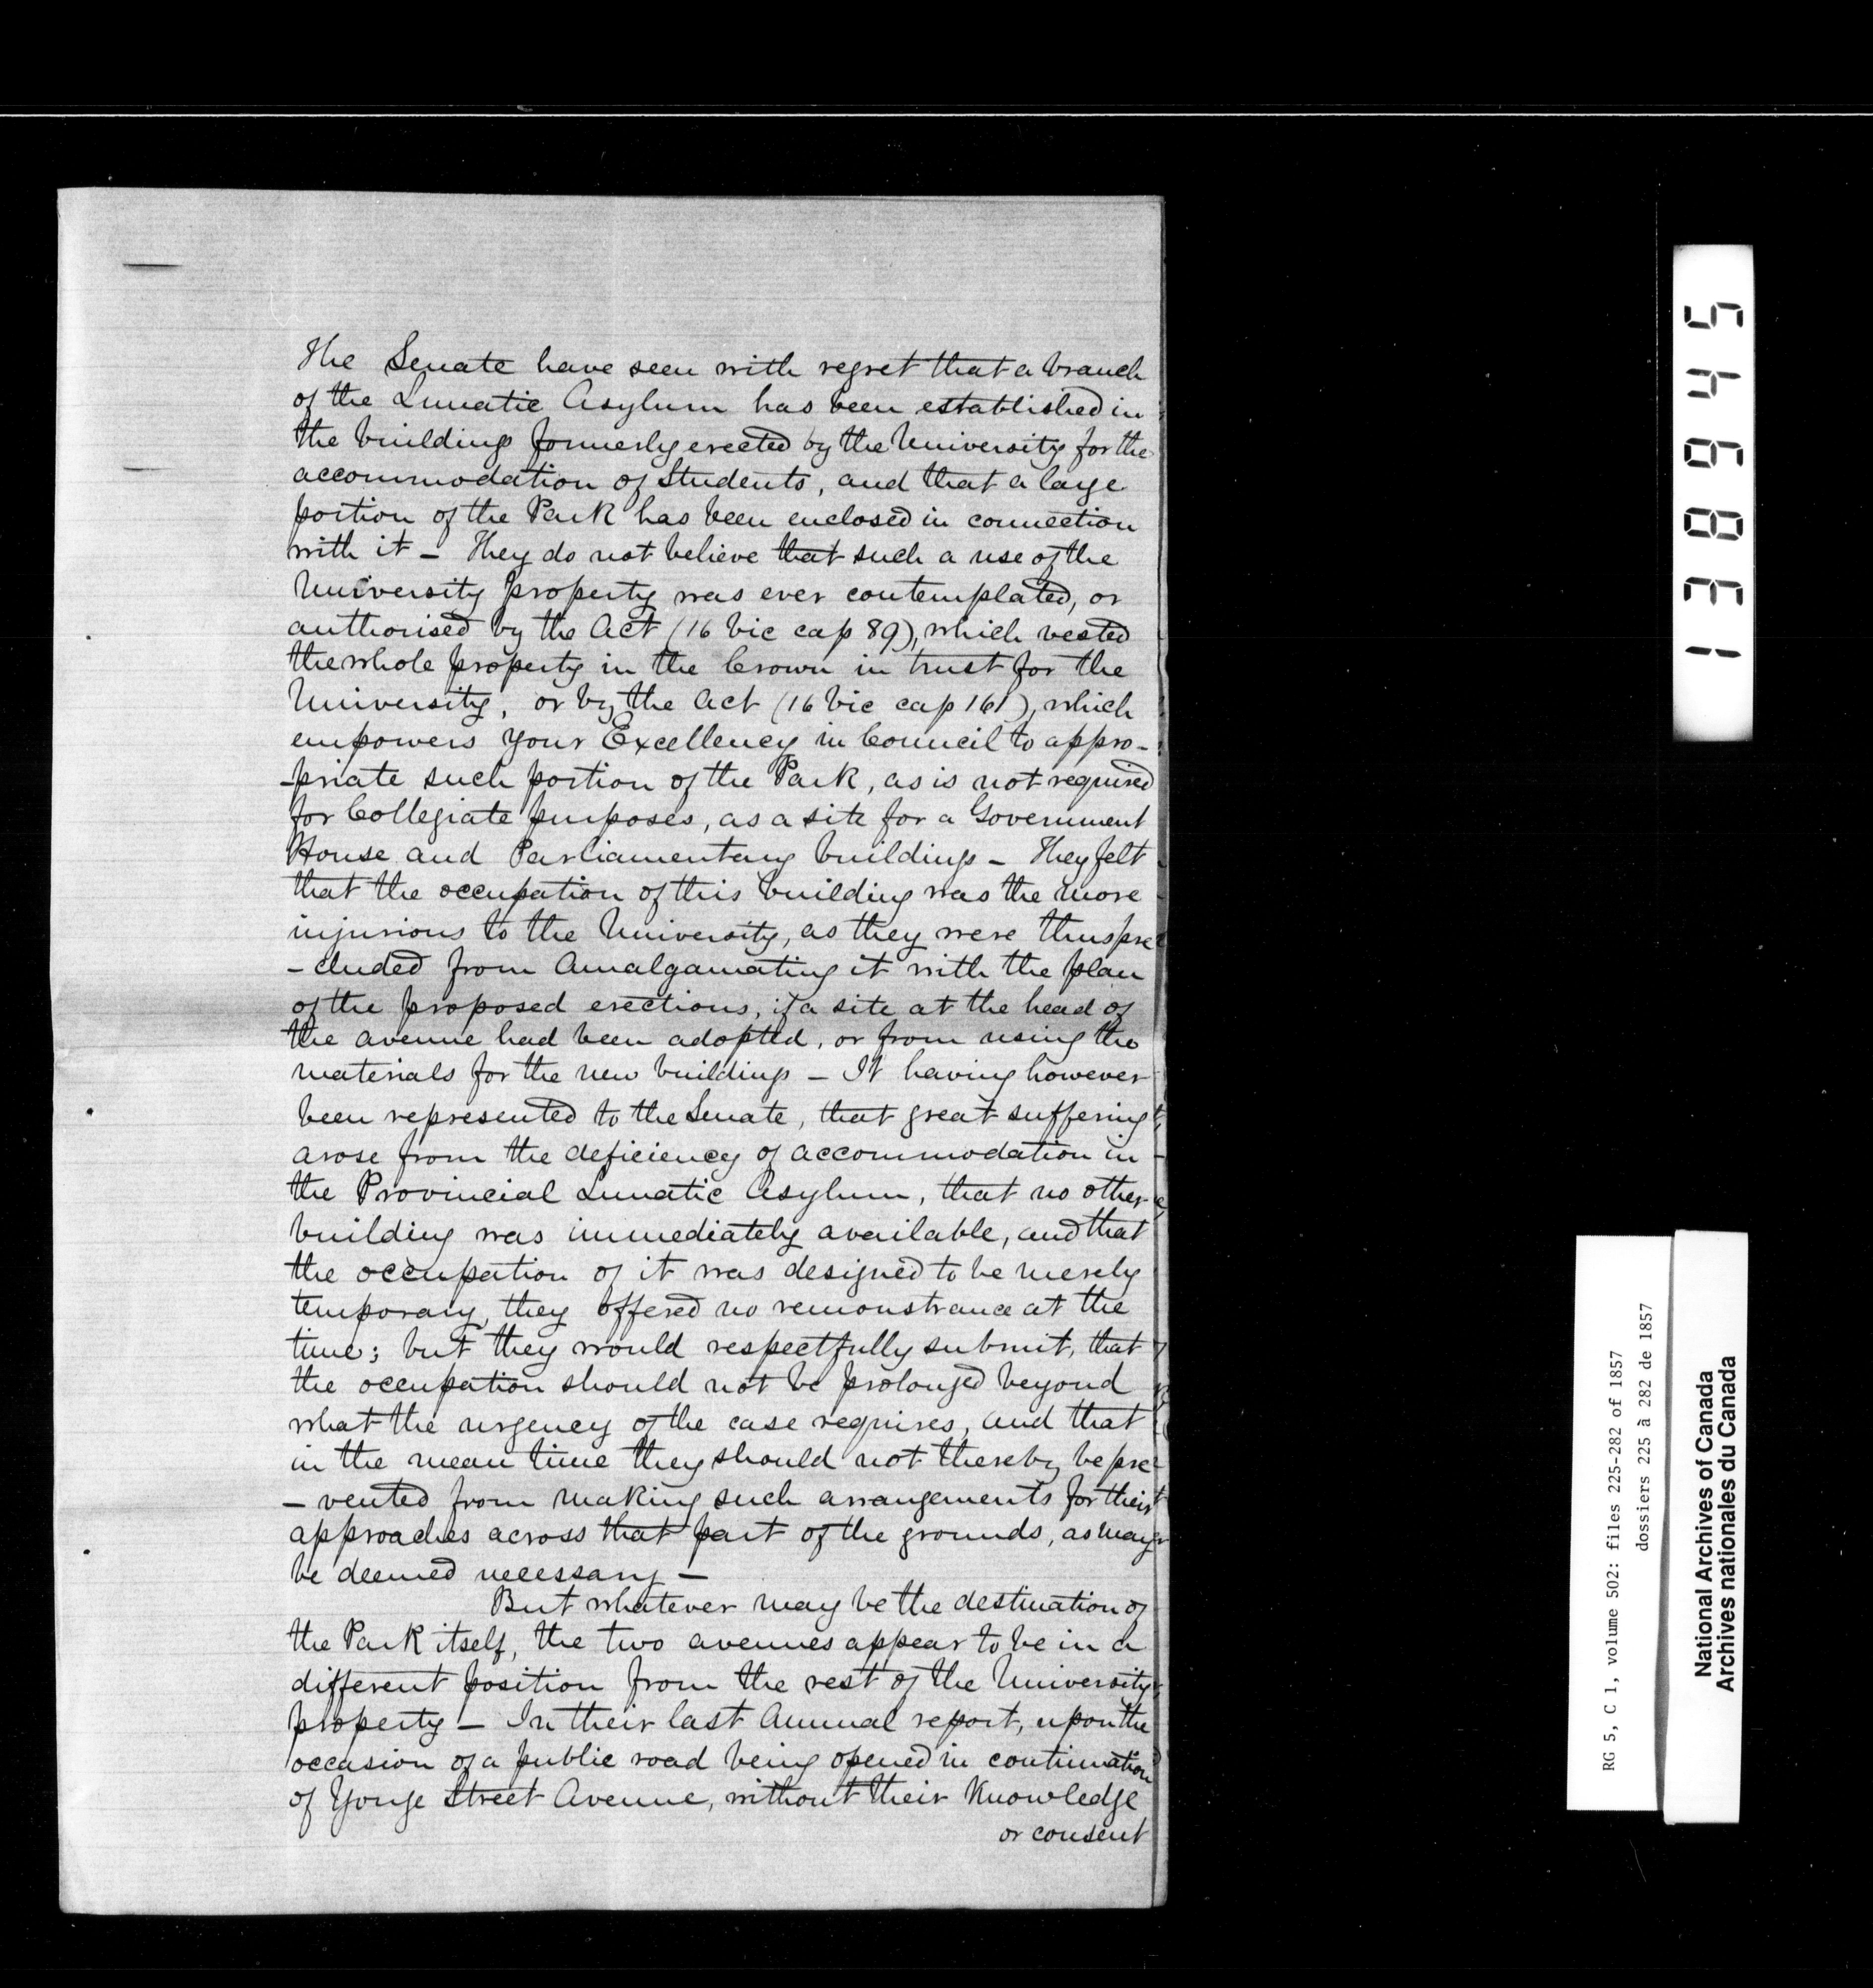 The Senate have seen with regret that a branch
of the Lunatic Asylum has been established in
the buildings formerly erected by the University for the
accommodation of Students, and that a large
portion of the Park has been enclosed in connection
with it – They do not believe that such a use of the
University property was ever contemplated, or
authorised by the Act (16 Vic cap 89), which vested
the whole property in the Crown in trust for the
University, or by the Act (16 Vic cap 161), which
empowers your Excellency in Council to appro-
-priate such portion of the Park, as is not required
for Collegiate purposes, as a site for a Government
House and Parliamentary buildings – They felt
that the occupation of this building was the more
injurious to the University, as they were thus pre
- cluded from Amalgamating it with the plan
of the proposed erections, if a site at the head of
the avenue had been adopted, or from using the
materials for the new buildings – It having however
been represented to the Senate, that great suffering
arose from the deficiency of accommodation in
the Provincial Lunatic Asylum, that no other
building was immediately available, and that
the occupation of it was designed to be merely
temporary, they offered no remonstrance at the
time; but they would respectfully submit, that
the occupation should not be prolonged beyond
what the urgency of the case requires, and that
in the mean time they should not thereby be pre
- vented from making such arrangements for their
approaches across that part of the grounds, as may
be deemed necessary –
But whatever may be the destination of
the Park itself, the two avenues appear to be in a
different position from the rest of the University
property – In their last Annual report, upon the
occasion of a public road being opened in continuation
of Yonge Street Avenue, without their Knowledge
or consent
138945
RG 5, C 1, volume 502: files 225-282 of 1857
dossiers 225 à 282 de 1857
National Archives of Canada
Archives nationales du Canada